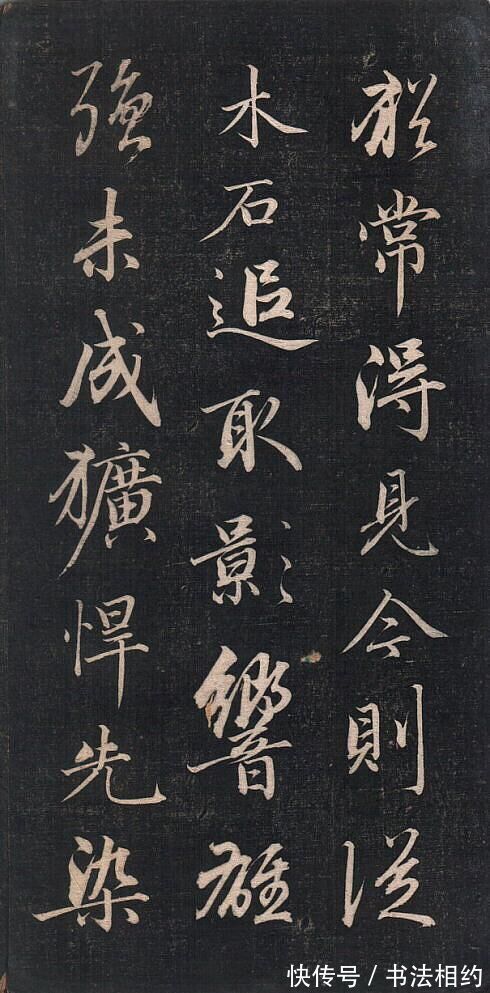 猶常得見今則從
木石追取影響雄
強未成獷悍先染
快传号 / 书法相约